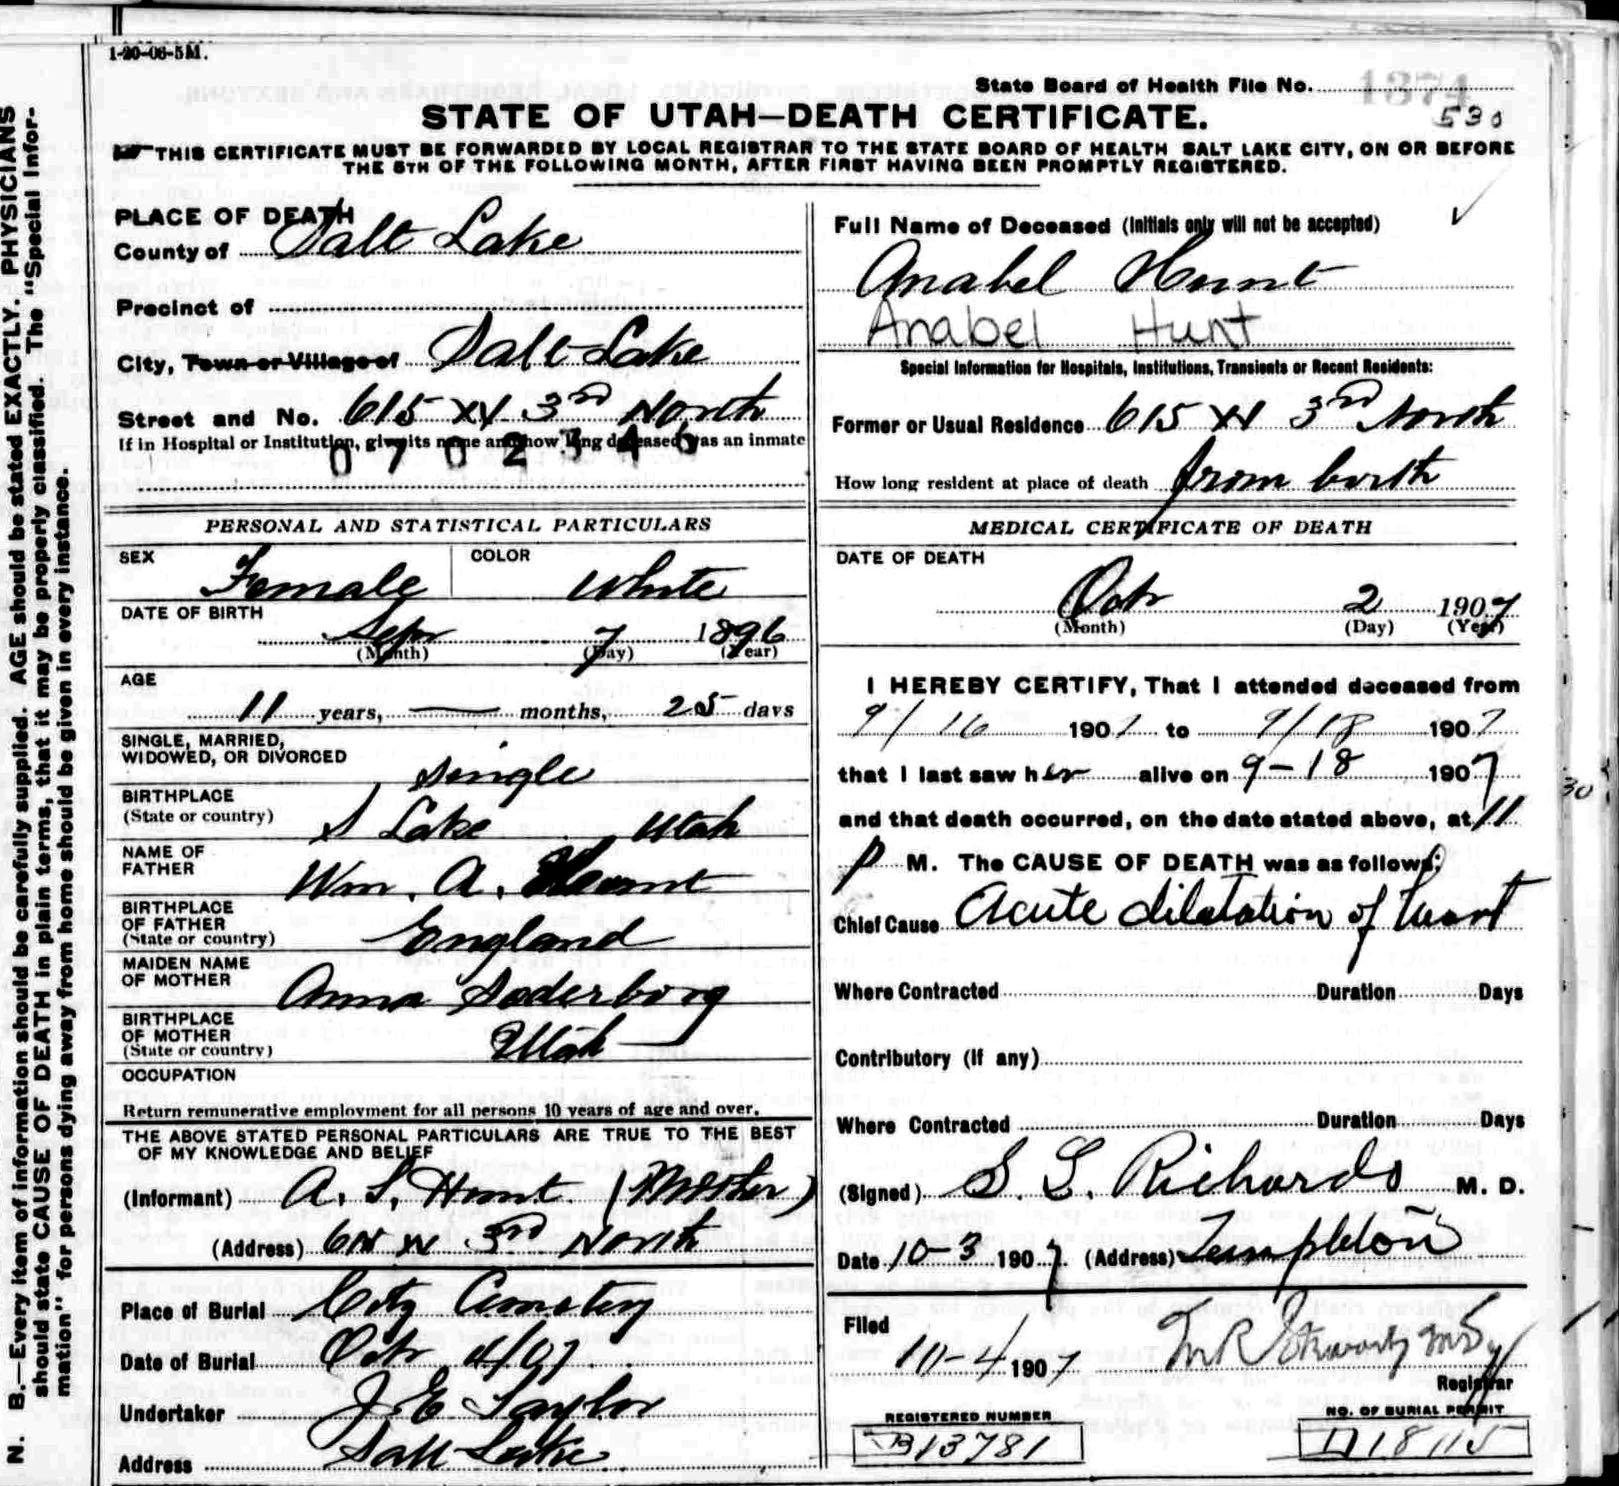 1-20-06-5M.
State Board of Health File No. 1374
530
STATE OF UTAH—DEATH CERTIFICATE.
THIS CERTIFICATE MUST BE FORWARDED BY LOCAL REGISTRAR TO THE STATE BOARD OF HEALTH SALT LAKE CITY, ON OR BEFORE
THE 5TH OF THE FOLLOWING MONTH, AFTER FIRST HAVING BEEN PROMPTLY REGISTERED.
N. B.—Every item of information should be carefully supplied. AGE should be stated EXACTLY. PHYSICIANS
should state CAUSE OF DEATH in plain terms, that it may be properly classified. The "Special Infor-
mation" for persons dying away from home should be given in every instance.
PLACE OF DEATH
County of Salt Lake
Precinct of
City, Town or Village of Salt Lake
Street and No. 615 W 3rd North
If in Hospital or Institution, give its name and how long deceased was an inmate
0702346
PERSONAL AND STATISTICAL PARTICULARS
SEX Female COLOR White
DATE OF BIRTH
Sept 7 1896
(Month) (Day) (Year)
AGE
11 years, — months, 25 days
SINGLE, MARRIED,
WIDOWED, OR DIVORCED single
BIRTHPLACE
(State or country) S Lake Utah
NAME OF
FATHER Wm. A. Hunt
BIRTHPLACE
OF FATHER
(State or country) England
MAIDEN NAME
OF MOTHER Anna Soderborg
BIRTHPLACE
OF MOTHER
(State or country) Utah
OCCUPATION
Return remunerative employment for all persons 10 years of age and over.
THE ABOVE STATED PERSONAL PARTICULARS ARE TRUE TO THE BEST
OF MY KNOWLEDGE AND BELIEF
(Informant) A. S. Hunt (Mother)
(Address) W 3rd North
Place of Burial City Cemetery
Date of Burial Oct 4/07
Undertaker J. E. Taylor
Address Salt Lake
Full Name of Deceased (Initials only will not be accepted)
Anabel Hunt
Anabel Hunt
Special Information for Hospitals, Institutions, Transients or Recent Residents:
Former or Usual Residence 615 W 3rd North
How long resident at place of death from birth
MEDICAL CERTIFICATE OF DEATH
DATE OF DEATH
Oct 2 1907
(Month) (Day) (Year)
I HEREBY CERTIFY, That I attended deceased from
9/16 1907 to 9/18 1907
that I last saw her alive on 9-18 1907
and that death occurred, on the date stated above, at 11
P M. The CAUSE OF DEATH was as follows:
Chief Cause Acute dilatation of heart
Where Contracted Duration Days
Contributory (if any)
Where Contracted Duration Days
(Signed) S. L. Richards M. D.
Date 10-3 1907 (Address) Templeton
Filed
10-4 1907
Registrar
REGISTERED NUMBER NO. OF BURIAL PERMIT
B13781 D18115
30